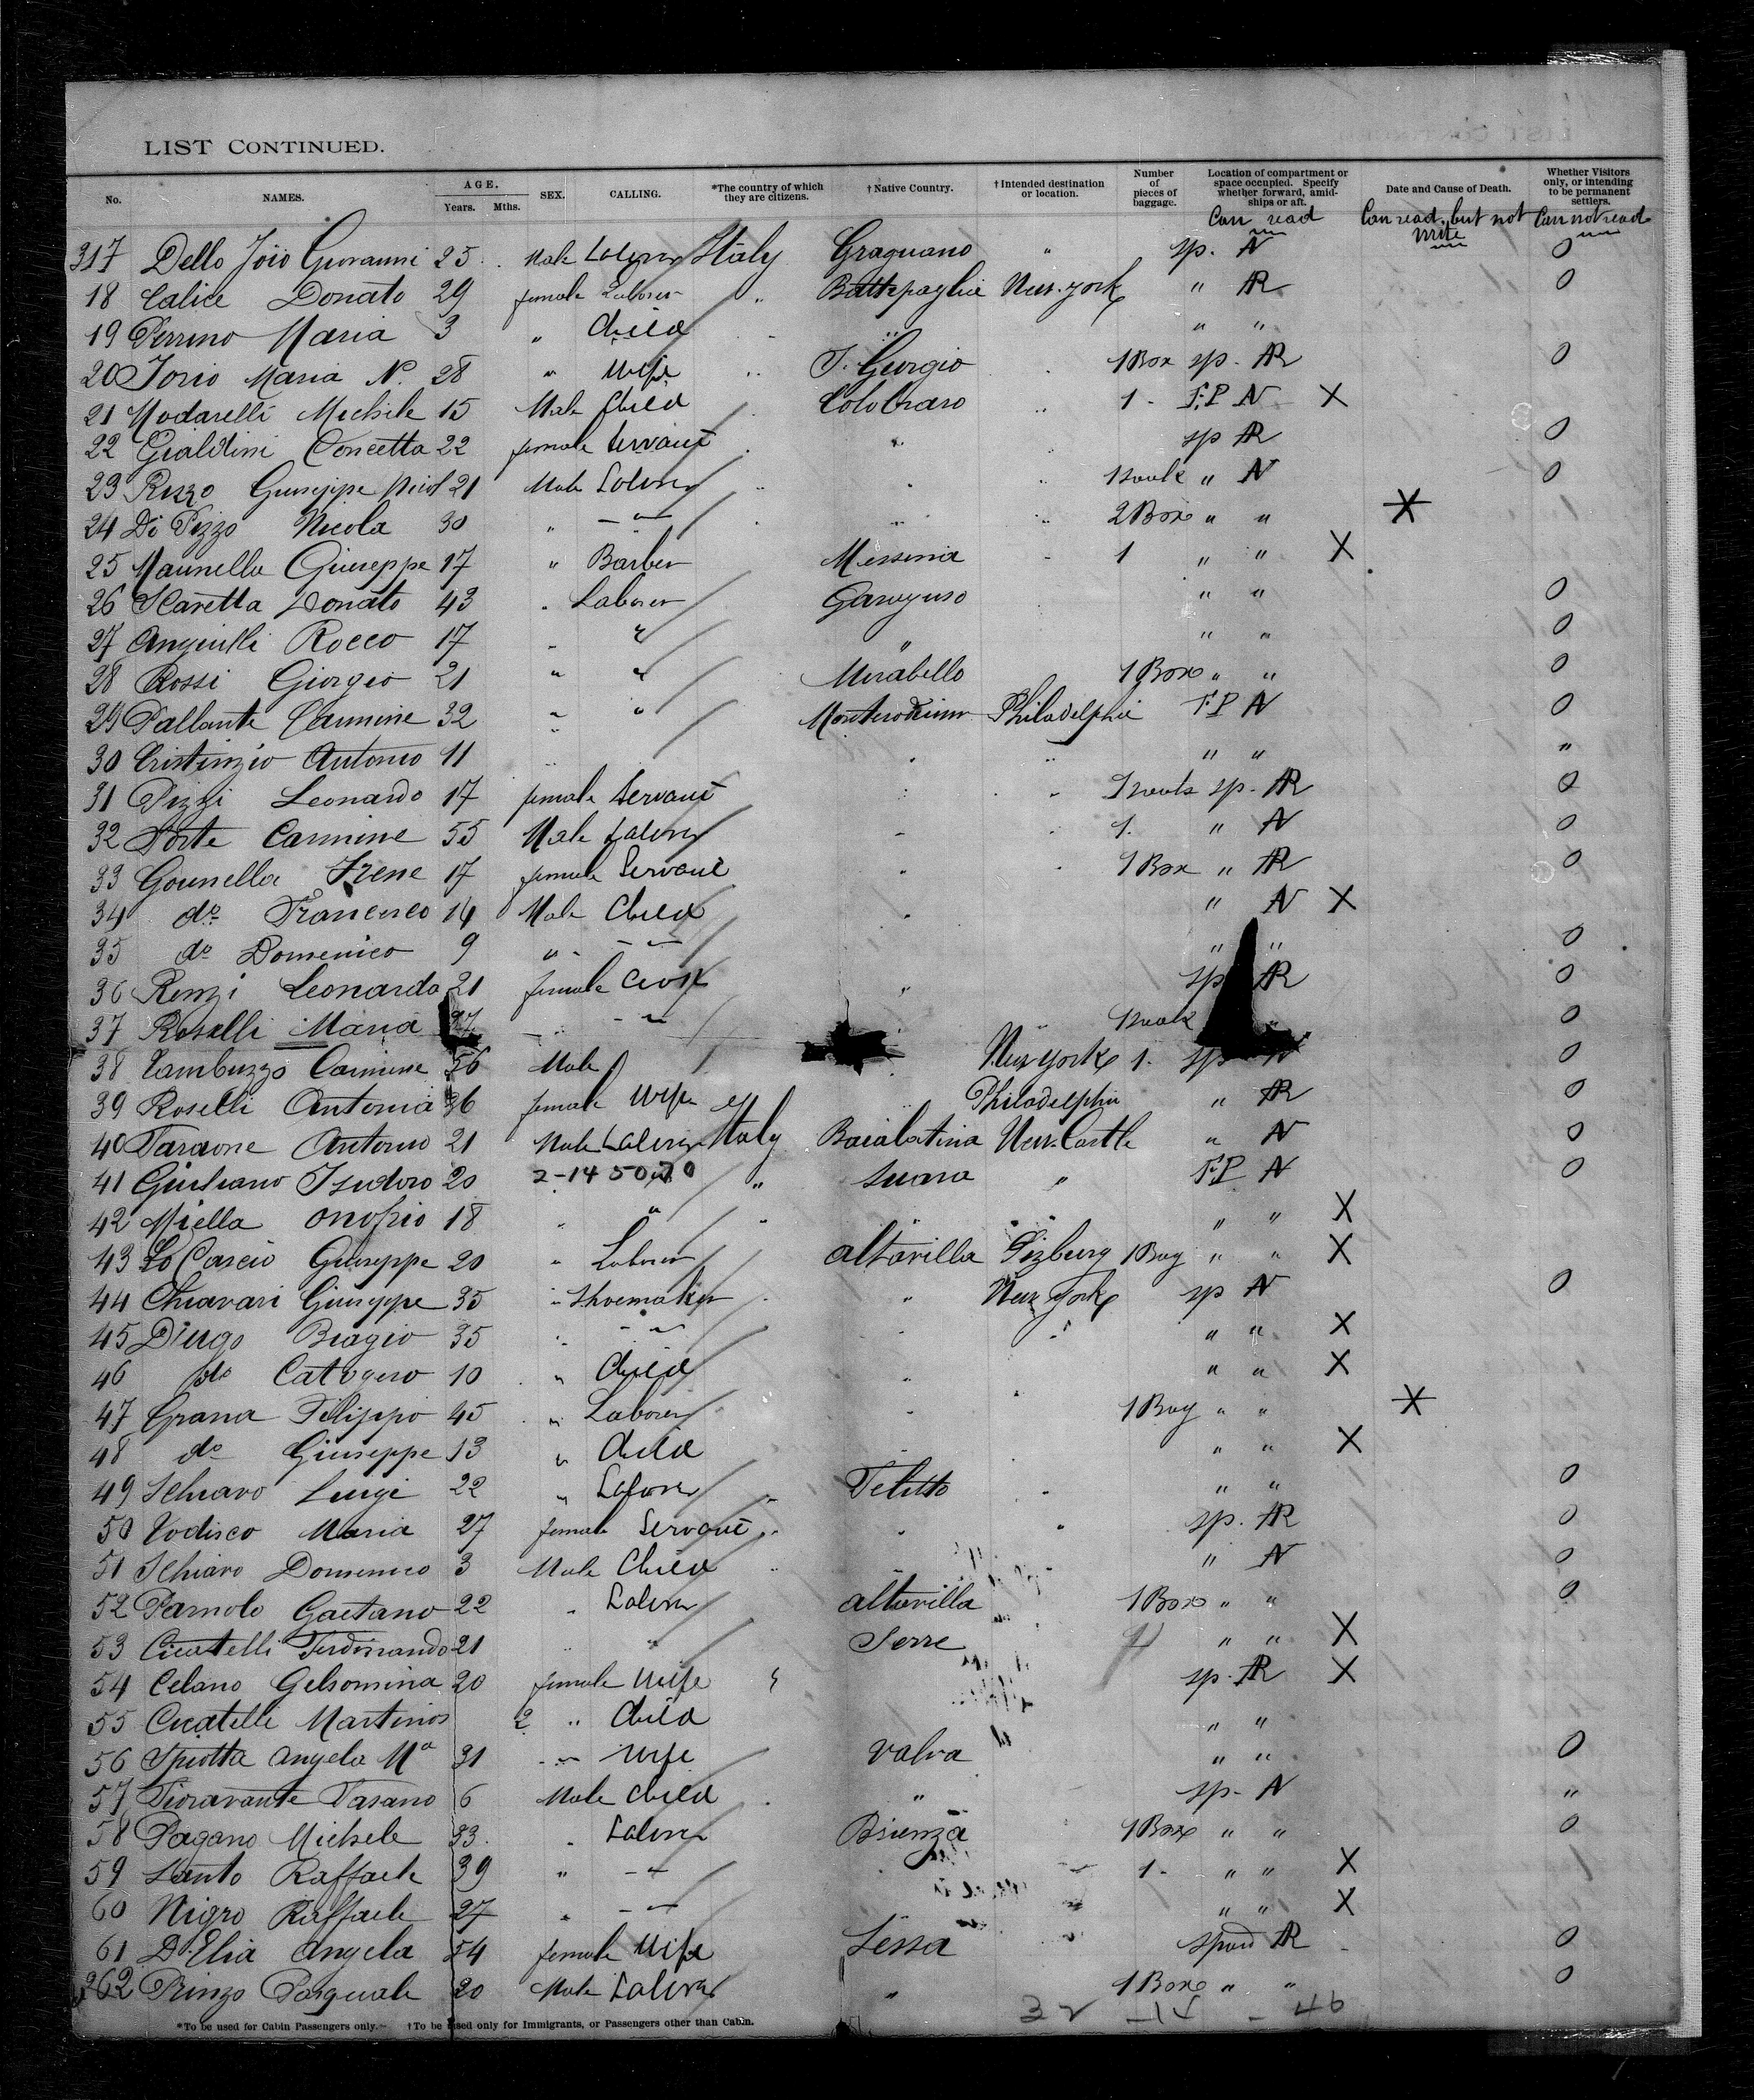 LIST CONTINUED.
No. NAMES. AGE. Years. Mths. SEX. CALLING. *The country of which they are citizens. †Native Country. †Intended destination or location. Number of pieces of baggage. Location of compartment or space occupied. Specify whether forward, amidships or aft. Date and Cause of Death. Whether Visitors only, or intending to be permanent settlers.
Can read Can read, but not write Can not read
317 Dello Joio Giovanni 25 Male Laborer Italy Gragnano " sp. N 0
18 Calice Donato 29 female Laborer " Battipaglia New-york " AR 0
19 Perrino Maria 3 " Child " " "
20 Iorio Maria N. 28 " Wife " S. Giorgio 1 Box sp. AR 0
21 Modarelli Michele 15 Male Child Colobraro " 1 - F.P N X
22 Gialdini Concetta 22 female Servant " sp AR 0
23 Rizzo Giuseppe Nicol 21 Male Laborer " " " N 0
24 Di Pizzo Nicola 30 " - " - " " 2 Box " " X
25 Mannella Giuseppe 17 " Barber Messina - 1 " " X
26 Scaretta Donato 43 " Laborer Garaguso " " 0
27 Rocco 17 " " " " " 0
28 Rossi Giorgio 21 " " Mirabello 1 Box " " 0
29 Pallante Carmine 32 " " Philadelphia F.P N 0
30 Cristinzio Antonio 11 " " " " "
31 Pizzi Leonardo 17 female Servant " sp. AR 0
32 Forte Carmine 55 Male Laborer " 1. " N 0
33 Gounella Irene 17 female Servant " 1 Box " AR 0
34 do Francesco 14 Male Child " " N X
35 do Domenico 9 " - " - " " 0
36 Renzi Leonarda 21 female " sp AR 0
37 Roselli Maria - " - " - 0
38 Tambuzzo Carmine 56 Male New york 1. sp N 0
39 Roselli Antonia 36 female Wife Philadelphia " AR 0
40 Taraone Antonio 21 Male Laborer Italy New-Castle " N 0
41 Giuliano Isidoro 20 2-14 5070 " " F.P N 0
42 Miella Onofrio 18 " " " " " X
43 Lo Cascio Giuseppe 20 " Laborer altavilla Pizburg 1 Bag " " X
44 Chiavari Giuseppe 35 " Shoemaker " New york sp N 0
45 Diugo Biagio 35 " - " - " " " " X
46 do Catogero 10 " Child " " " X
47 Grana Filippo 45 " Laborer " 1 Bag " " X
48 do Giuseppe 13 " Child " " " X
49 Schiavo Luigi 22 " Laborer " " " 0
50 Lodisco Maria 27 female Servant " " " sp. AR 0
51 Schiavo Domenico 3 Male Child " " N 0
52 Parnolo Gaetano 22 " Laborer altavilla 1 Box " " 0
53 Cicatelli Ferdinando 21 " " Serre " " X
54 Celano Gelsomina 20 female Wife sp. AR X
55 Cicatelli Martinos 2 " Child " "
56 Spiotta Angela Ma 31 " Wife Valva " " 0
57 Fioravante Fasano 6 Male Child " sp- N "
58 Pagano Michele 33 " Laborer Brienza 1 Box " " 0
59 Santo Raffaele 39 " - " - " 1 - " " X
60 Nigro Raffaele 27 " - " - " " X
61 D'Elia Angela 54 female Wife Sessa AR 0
362 Rinzo Pasquale 20 Male Laborer " 1 Box " " 0
32 - 14 - 46
*To be used for Cabin Passengers only.— †To be used only for Immigrants, or Passengers other than Cabin.